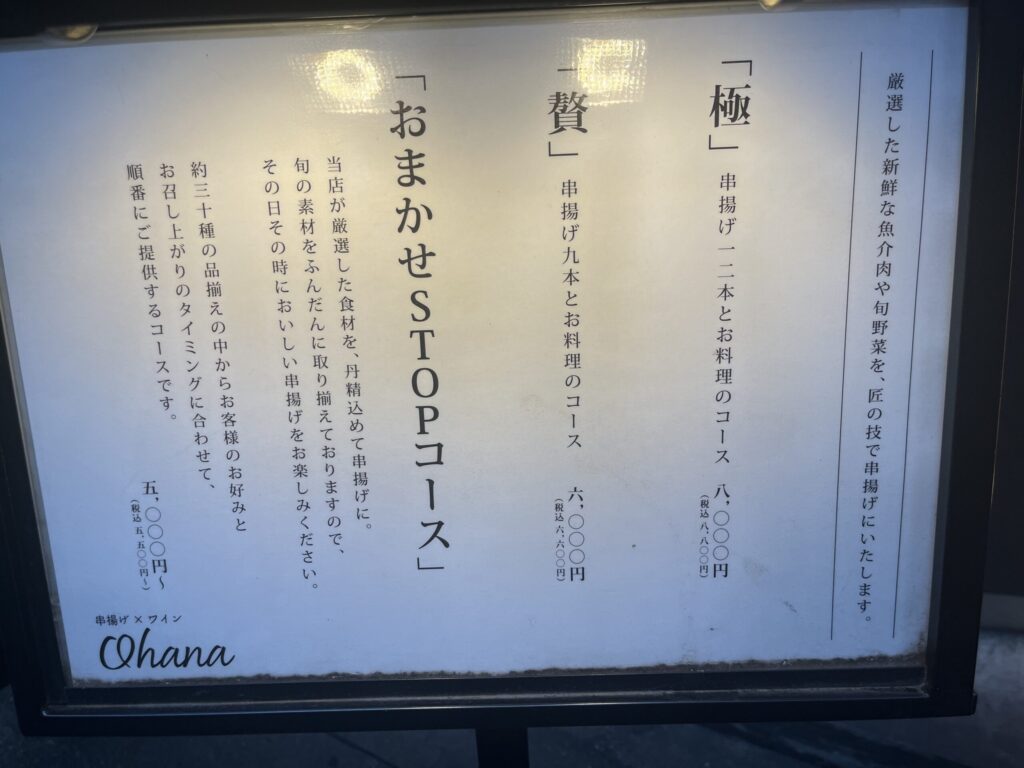 厳選した新鮮な魚介肉や旬野菜を、匠の技で串揚げにいたします。
「極」 串揚げ一二本とお料理のコース 八,〇〇〇円
(税込 八,八〇〇円)
「贅」 串揚げ九本とお料理のコース 六,〇〇〇円
(税込 六,六〇〇円)
「おまかせSTOPコース」
当店が厳選した食材を、丹精込めて串揚げに。
旬の素材をふんだんに取り揃えておりますので、
その日その時においしい串揚げをお楽しみください。
約三十種の品揃えの中からお客様のお好みと
お召し上がりのタイミングに合わせて、
順番にご提供するコースです。
五,〇〇〇円〜
(税込 五,五〇〇円〜)
串揚げ×ワイン
Ohana